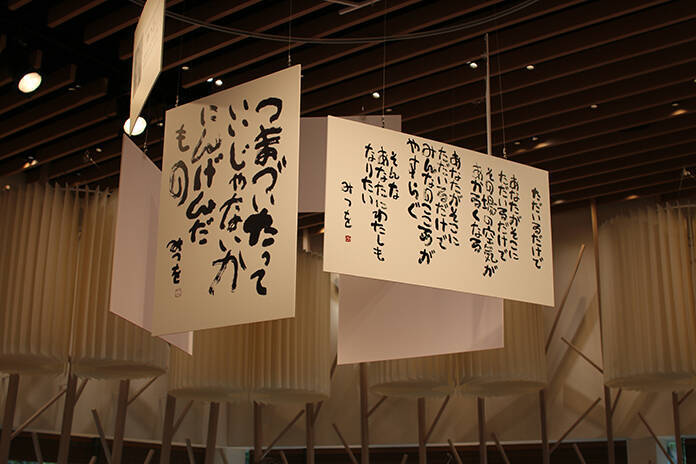 つまづいたって
いいじゃないか
にんげんだ
もの
みつを
ただいるだけで
あなたがそこに
ただいるだけで
その場の空気が
あかるくなる
あなたがそこに
ただいるだけで
みんなのこころが
やすらぐ
そんな
あなたにわたしも
なりたい
みつを